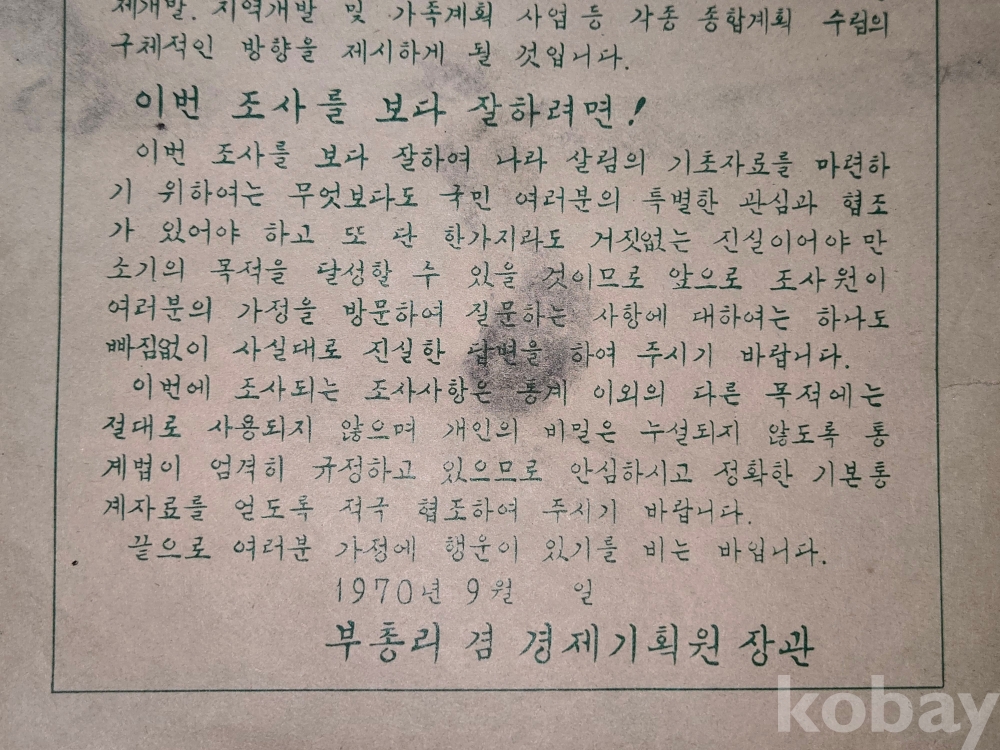 제개발. 지역개발 및 가족계획 사업등 각종 종합계획 수립의
구체적인 방향을 제시하게 될 것입니다.
이번 조사를 보다 잘하려면!
이번 조사를 보다 잘하여 나라 살림의 기초자료를 마련하
기 위하여는 무엇보다도 국민 여러분의 특별한 관심과 협조
가 있어야 하고 또 단 한가지라도 거짓없는 진실이어야만
소기의 목적을 달성할 수 있을 것이므로 앞으로 조사원이
여러분의 가정을 방문하여 질문하는 사항에 대하여는 하나도
빠짐없이 사실대로 진실한 답변을 하여 주시기 바랍니다.
이번에 조사되는 조사사항은 통계 이외의 다른 목적에는
절대로 사용되지 않으며 개인의 비밀은 누설되지 않도록 통
계법이 엄격히 규정하고 있으므로 안심하시고 정확한 기본통
계자료를 얻도록 적극 협조하여 주시기 바랍니다.
끝으로 여러분 가정에 행운이 있기를 비는 바입니다.
1970년 9월 일
부총리 겸 경제기획원 장관
kobay